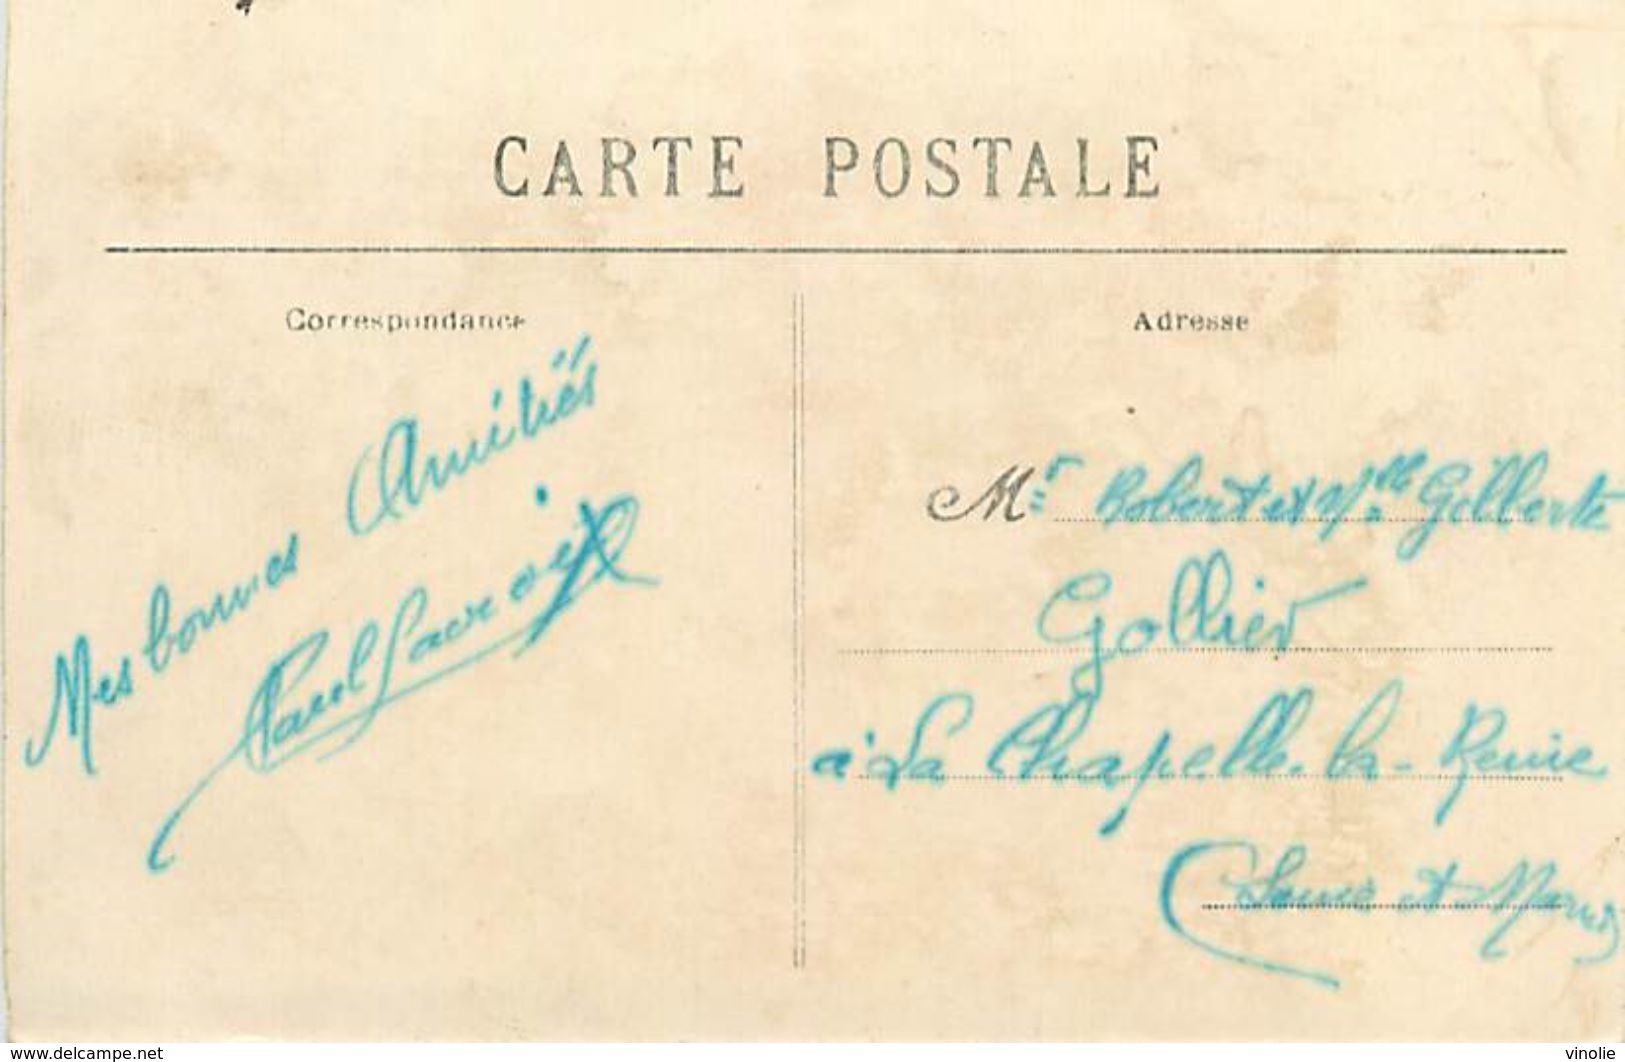 CARTE POSTALE
Correspondance
Adresse
Mes bonnes Amitiés
Paul Lacroix
Mr Robert et Mlle Gilberte
Gollier
à La Chapelle-la-Reine
(Seine et Marne)
www.delcampe.net
vinolie